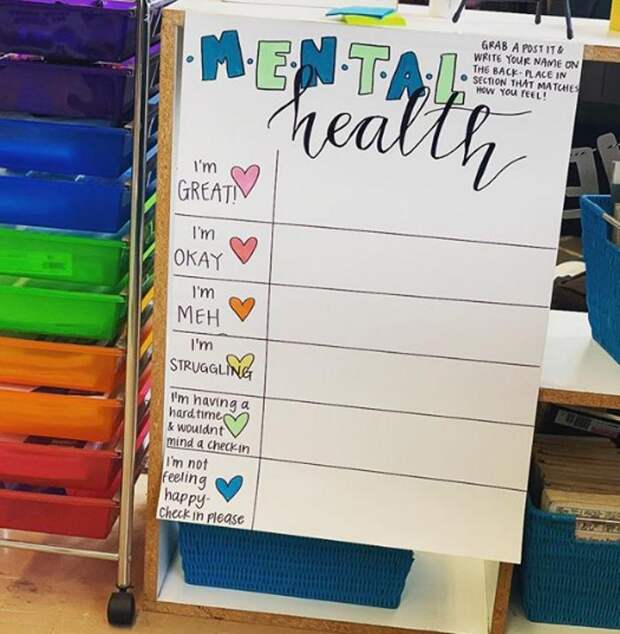 M·E·N·T·A·L
health
GRAB A POST IT &
WRITE YOUR NAME ON
THE BACK- PLACE IN
SECTION THAT MATCHES
HOW YOU FEEL!
I'm
GREAT!
I'm
OKAY
I'm
MEH
I'm
STRUGGLING
I'm having a
hard time
& wouldnt
mind a check in
I'm not
feeling
happy-
check in please